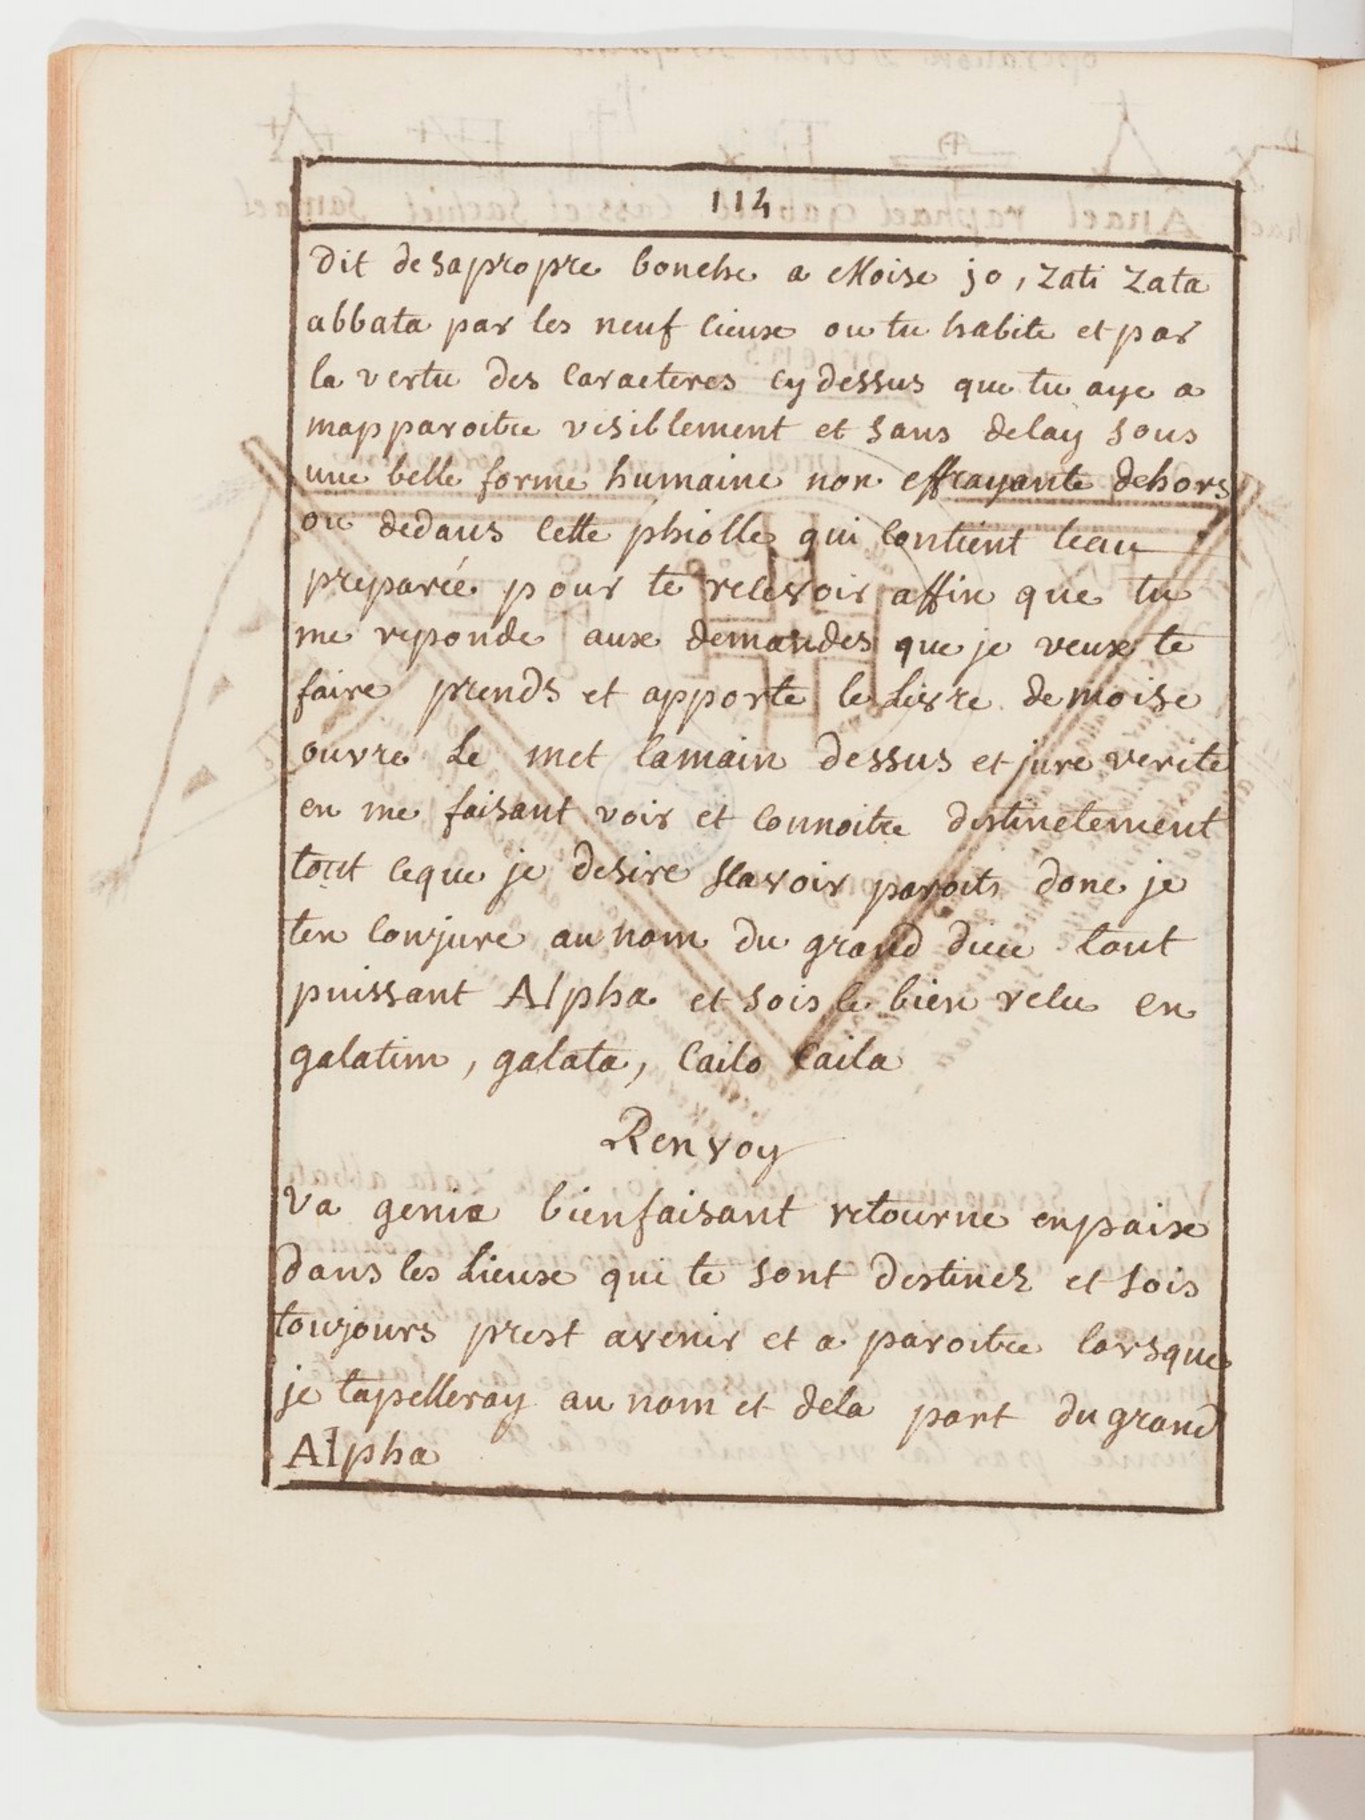 114
dit de sa propre bouche a Moise jo, Zati Zata
abbata par les neuf cieux ou tu habite et par
la vertu des caracteres cy dessus que tu aye a
mapparoitre visiblement et sans delay sous
une belle forme humaine non effrayante dehors
ou dedans cette phiolle qui contient leau
preparée pour te recevoir affin que tu
me reponde aux demandes que je veux te
faire prends et apporte le Livre de moise
ouvre Le met lamain dessus et jure verite
en me faisant voir et connoitre distinctement
tout ceque je desire scavoir paroits donc je
ten conjure au nom du grand dieu tout
puissant Alpha et sois le bien velu en
galatim, galata, Cailo Caila
Renvoy
Va genie bienfaisant retourne enpaix
dans les Lieux qui te sont destinez et sois
toujours prest avenir et a paroitre lorsque
je tapelleray au nom et dela part du grand
Alpha